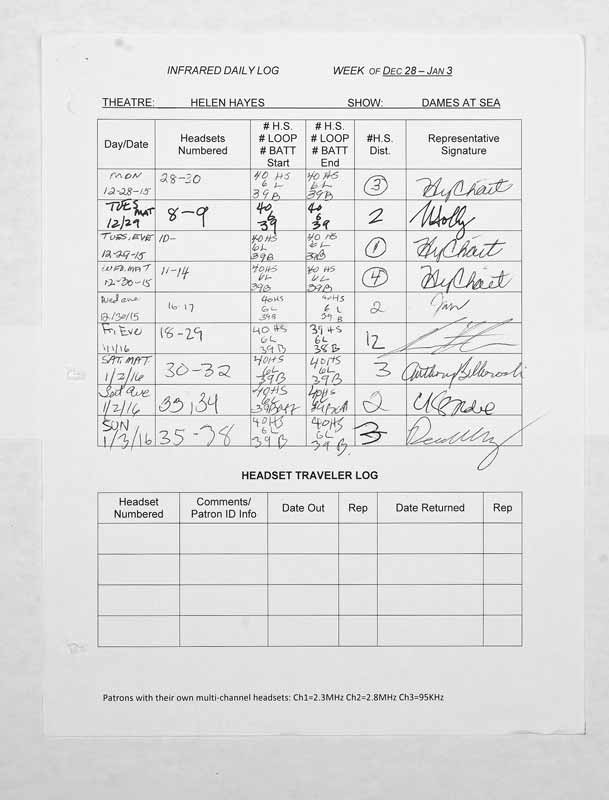 INFRARED DAILY LOG WEEK OF DEC 28 – JAN 3
THEATRE: HELEN HAYES SHOW: DAMES AT SEA
Day/Date Headsets Numbered # H.S. # LOOP # BATT Start # H.S. # LOOP # BATT End #H.S. Dist. Representative Signature
MON 12-28-15 28-30 40 HS 6 L 39 B 40 HS 6 L 39 B 3
TUES MAT 12/29 8-9 40 6 39 40 6 39 2 Holly
TUES. EVE 12-29-15 10- 40 HS 6L 39B 40 HS 6L 39B 1
WED. MAT 12-30-15 11-14 40HS 6L 39B 40HS 6L 39B 4
Wed eve 12/30/15 16-17 40HS 6L 39B 40HS 6 L 39 B 2
Fri Eve 1/1/16 18-29 40 HS 6L 39 B 39 HS 6L 38 B 12
SAT. MAT 1/2/16 30-32 40HS 6L 39B 40HS 6L 39B 3 Anthony
Sat eve 1/2/16 33,34 40HS 6L 39Batt 40HS 6L 39Batt 2
SUN 1/3/16 35-38 40HS 6L 39 B 40HS 6L 39 B. 3
HEADSET TRAVELER LOG
Headset Numbered Comments/ Patron ID Info Date Out Rep Date Returned Rep
Patrons with their own multi-channel headsets: Ch1=2.3MHz Ch2=2.8MHz Ch3=95KHz